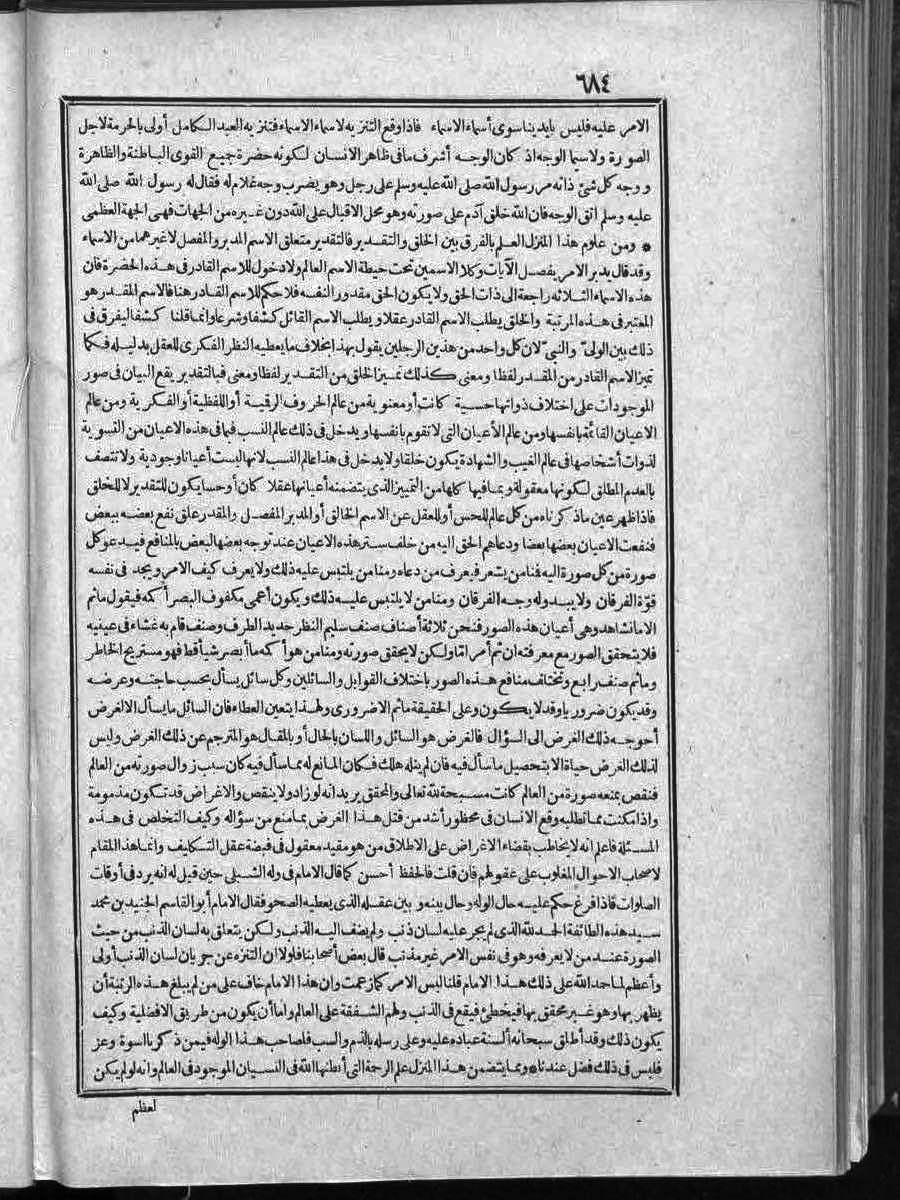 ٦٨٤
الامر عليه فليس بايدينا سوى أسماء الاسماء فاذا وقع التنزيه لاسماء الاسماء فتنزيه العبد الكامل أولى بالحرمة لاجل
الصورة ولاسيما الوجه اذ كان الوجه أشرف ما فى ظاهر الانسان لكونه حضرة جميع القوى الباطنة والظاهرة
ووجه كل شئ ذاته مر رسول الله صلى الله عليه وسلم على رجل وهو يضرب وجه غلام له فقال له رسول الله صلى الله
عليه وسلم اتق الوجه فان الله خلق آدم على صورته وهو محل الاقبال على الله دون غيره من الجهات فهى الجهة العظمى
* ومن علوم هذا المنزل العلم بالفرق بين الخلق والتقدير فالتقدير متعلق الاسم المدبر والمفصل لا غيرهما من الاسماء
وقد قال يدبر الامر يفصل الآيات وكلا الاسمين تحت حيطة الاسم العالم ولا دخول للاسم القادر فى هذه الحضرة فان
هذه الاسماء الثلاثة راجعة الى ذات الحق ولا يكون الحق مقدور النفسه فلا حكم للاسم القادر هنا فالاسم المقدر هو
المعتبر فى هذه المرتبة والخلق يطلب الاسم القادر عقلا ويطلب الاسم القائل كشفا وشرعا وانما قلنا كشفا ليفرق فى
ذلك بين الولىّ والنبىّ لان كل واحد من هذين الرجلين يقول بهذا بخلاف ما يعطيه النظر الفكرى للعقل بدليله فكما
تميز الاسم القادر من المقدر لفظا ومعنى كذلك تميز الخلق من التقدير لفظا ومعنى فبالتقدير يقع البيان فى صور
الموجودات على اختلاف ذواتها حسية كانت أو معنوية من عالم الحروف الرقمية أو اللفظية أو الفكرية ومن عالم
الاعيان القائمة بانفسها ومن عالم الأعيان التى لا تقوم بانفسها ويدخل فى ذلك عالم النسب فما فى هذه الاعيان من التسوية
لذوات أشخاصها فى عالم الغيب والشهادة يكون خلقا ولا يدخل فى هذا عالم النسب لانها ليست أعيانا وجودية ولا تتصف
بالعدم المطلق لكونها معقولة وبما فيها كلها من التمييز الذى يتضمنه أعيانها عقلا كان أو حسا يكون للتقدير لا للخلق
فاذا ظهر عين ما ذكرناه من كل عالم للحس أو للعقل عن الاسم الخالق أو المدبر المفصل والمقدر علق نفع بعضه ببعض
فنفعت الاعيان بعضها بعضا ودعاهم الحق اليه من خلف ستر هذه الاعيان عند توجه بعضها لبعض بالمنافع فيدعو كل
صورة من كل صورة اليه فنا من يشعر فيعرف من دعاه ومنا من يلتبس عليه ذلك ولا يعرف كيف الامر ويجد فى نفسه
قوّة الفرقان ولا يبدو له وجه الفرقان ومنا من لا يلتبس عليه ذلك ويكون أعمى مكفوف البصر أكمه فيقول ما ثم
الا ما نشاهد وهى أعيان هذه الصور فنحن ثلاثة أصناف صنف سليم النظر حديد الطرف وصنف قام به غشاء فى عينيه
فلا يتحقق الصور مع معرفته ان ثم أمرا ما ولكن لا يحقق صورته ومنا من هو أكمه ما أبصر شيأ قط فهو مستريح الخاطر
وما ثم صنف رابع وتختلف منافع هذه الصور باختلاف القوابل والسائلين وكل سائل يسأل بحسب حاجته وغرضه
وقد يكون ضروريا وقد لا يكون وعلى الحقيقة ما ثم الا ضرورى ولهذا يتعين العطاء فان السائل ما يسأل الا لغرض
أحوجه ذلك الغرض الى السؤال فالغرض هو السائل واللسان بالحال أو بالمقال هو المترجم عن ذلك الغرض وليس
لذلك الغرض حياة الا بتحصيل ما سأل فيه فان لم ينله هلك فكان المانع له مما سأل فيه كان سبب زوال صورته من العالم
فنقص بمنعه صورة من العالم كانت مسبحة لله تعالى والمحقق يريد انه لو زاد ولا ينقص والاغراض قد تكون مذمومة
واذا مكنت مما تطلبه وقع الانسان فى محظور أشد من قتل هذا الغرض بما منع من سؤاله وكيف التخلص فى هذه
المسئلة فاعلم انه لا يخاطب بقضاء الاغراض على الاطلاق من هو مقيد معقول فى قبضة عقل التكليف وانما هذا المقام
لاصحاب الاحوال المغلوب على عقولهم فان قلت فالحفظ أحسن كما قال الامام فى وله الشبلى حين قيل له انه يرد فى أوقات
الصلوات فاذا فرغ حكم عليه حال الوله وحال بينه وبين عقله الذى يعطيه الصحو فقال الامام أبو القاسم الجنيد بن محمد
سيد هذه الطائفة الحمد لله الذى لم يجر عليه لسان ذنب ولم يضف اليه الذنب ولكن يتعلق به لسان الذنب من حيث
الصورة عند من لا يعرفه وهو فى نفس الامر غير مذنب قال بعض أصحابنا فلولا ان التنزه عن جريان لسان الذنب أولى
وأعظم لما حمد الله على ذلك هذا الامام قلنا ليس الامر كما زعمت وان هذا الامام خاف على من لم يبلغ هذه الرتبة أن
يظهر بها وهو غير محقق بها فيخطئ فيقع فى الذنب ولهم الشفقة على العالم واما أن يكون من طريق الافضلية وكيف
يكون ذلك وقد أطلق سبحانه ألسنة عباده عليه وعلى رسله بالذم والسب فلصاحب هذا الوله فيمن ذكرنا اسوة وعز
فليس فى ذلك فضل عندنا * ومما يتضمن هذا المنزل علم الرحمة التى أبطنها الله فى النسيان الموجود فى العالم وانه لو لم يكن
لعظم